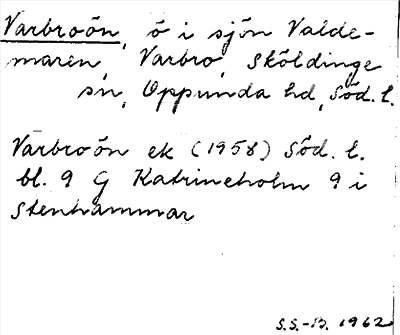 Varbroön, ö i sjön Valde-
maren, Varbro, Sköldinge
sn, Oppunda hd, Söd. l.
Varbroön ek (1958) Söd. l.
bl. 9 G Katrineholm 9 i
Stenhammar
S.S.-B. 1962